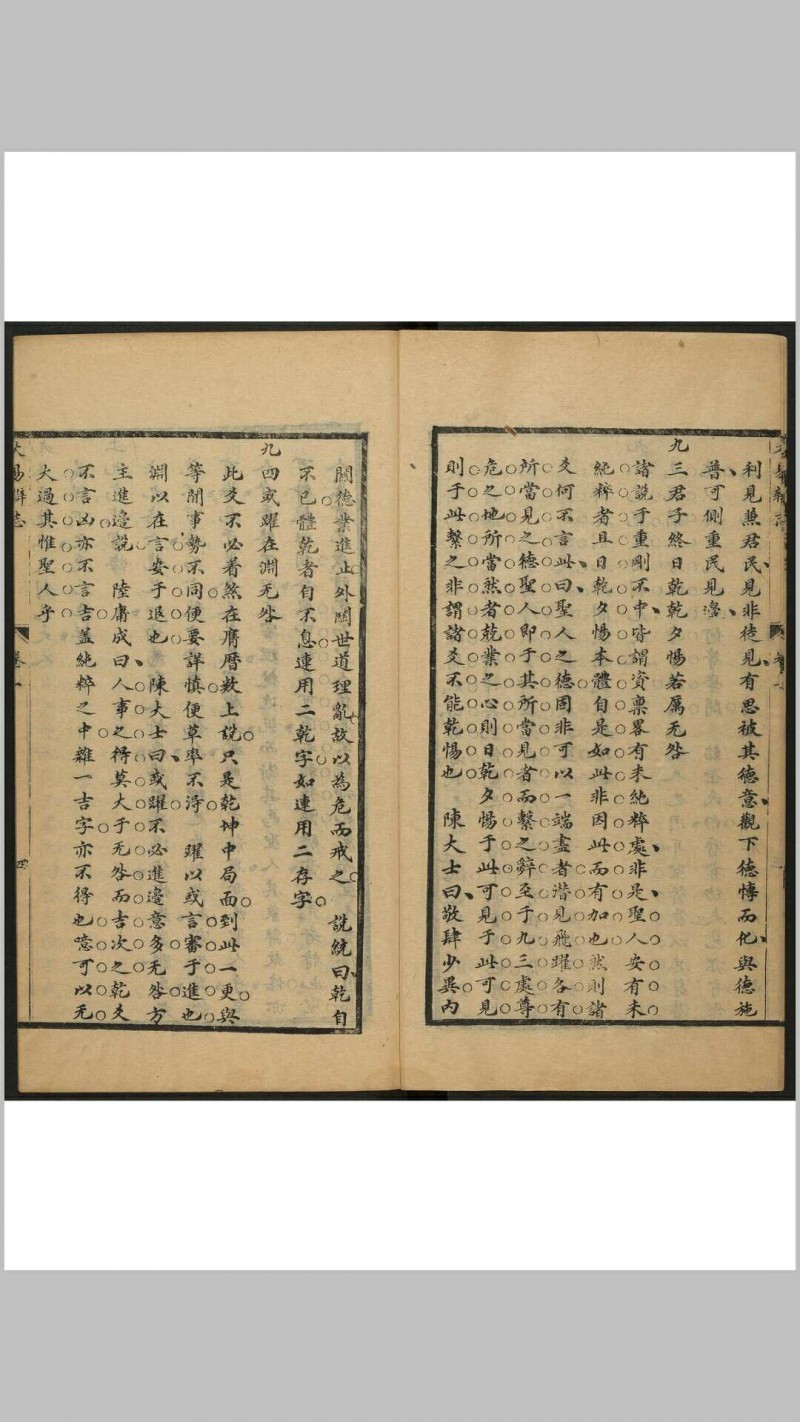 利見兼君民見非徒見有思被其德意觀下德博而化與德施
普可側重民見邊
九三君子終日乾乾夕惕若厲无咎
諸說于重剛不中皆謂資稟畧有未純粹處非是聖人安有未
純粹者且日乾夕惕本體自是如此非因此而有加也然則諸
爻何不言此曰聖人之德固非可以一端盡者潛見飛躍各有
所當見之德聖人即于其所當見者而繫之辭至于九三處尊
危之地所當然者兢業之心則日乾夕惕于此可見于此可見
則于此繫之非謂諸爻不能乾惕也 陳大士曰敬肆少異內
關德業進止外關世道理亂故以為危而戒之 說統曰乾自
不已體乾者自不息連用二乾字如連用二存字
九四或躍在淵无咎
此爻不必着煞在膺曆數上說只是乾坤中局面到此一更與
等閒事勢不同便要詳慎便草率不得 躍以或言審于進也
淵以在言安于退也 陳大士曰或躍不必進邊意多无咎方
主進邊說 陸庸成曰人事之得莫大于无咎而吉次之乾爻
不言凶亦不言吉蓋純粹之中雜一吉字亦不得也噫可以无
大過其惟聖人乎
大易辯志
卷一
四